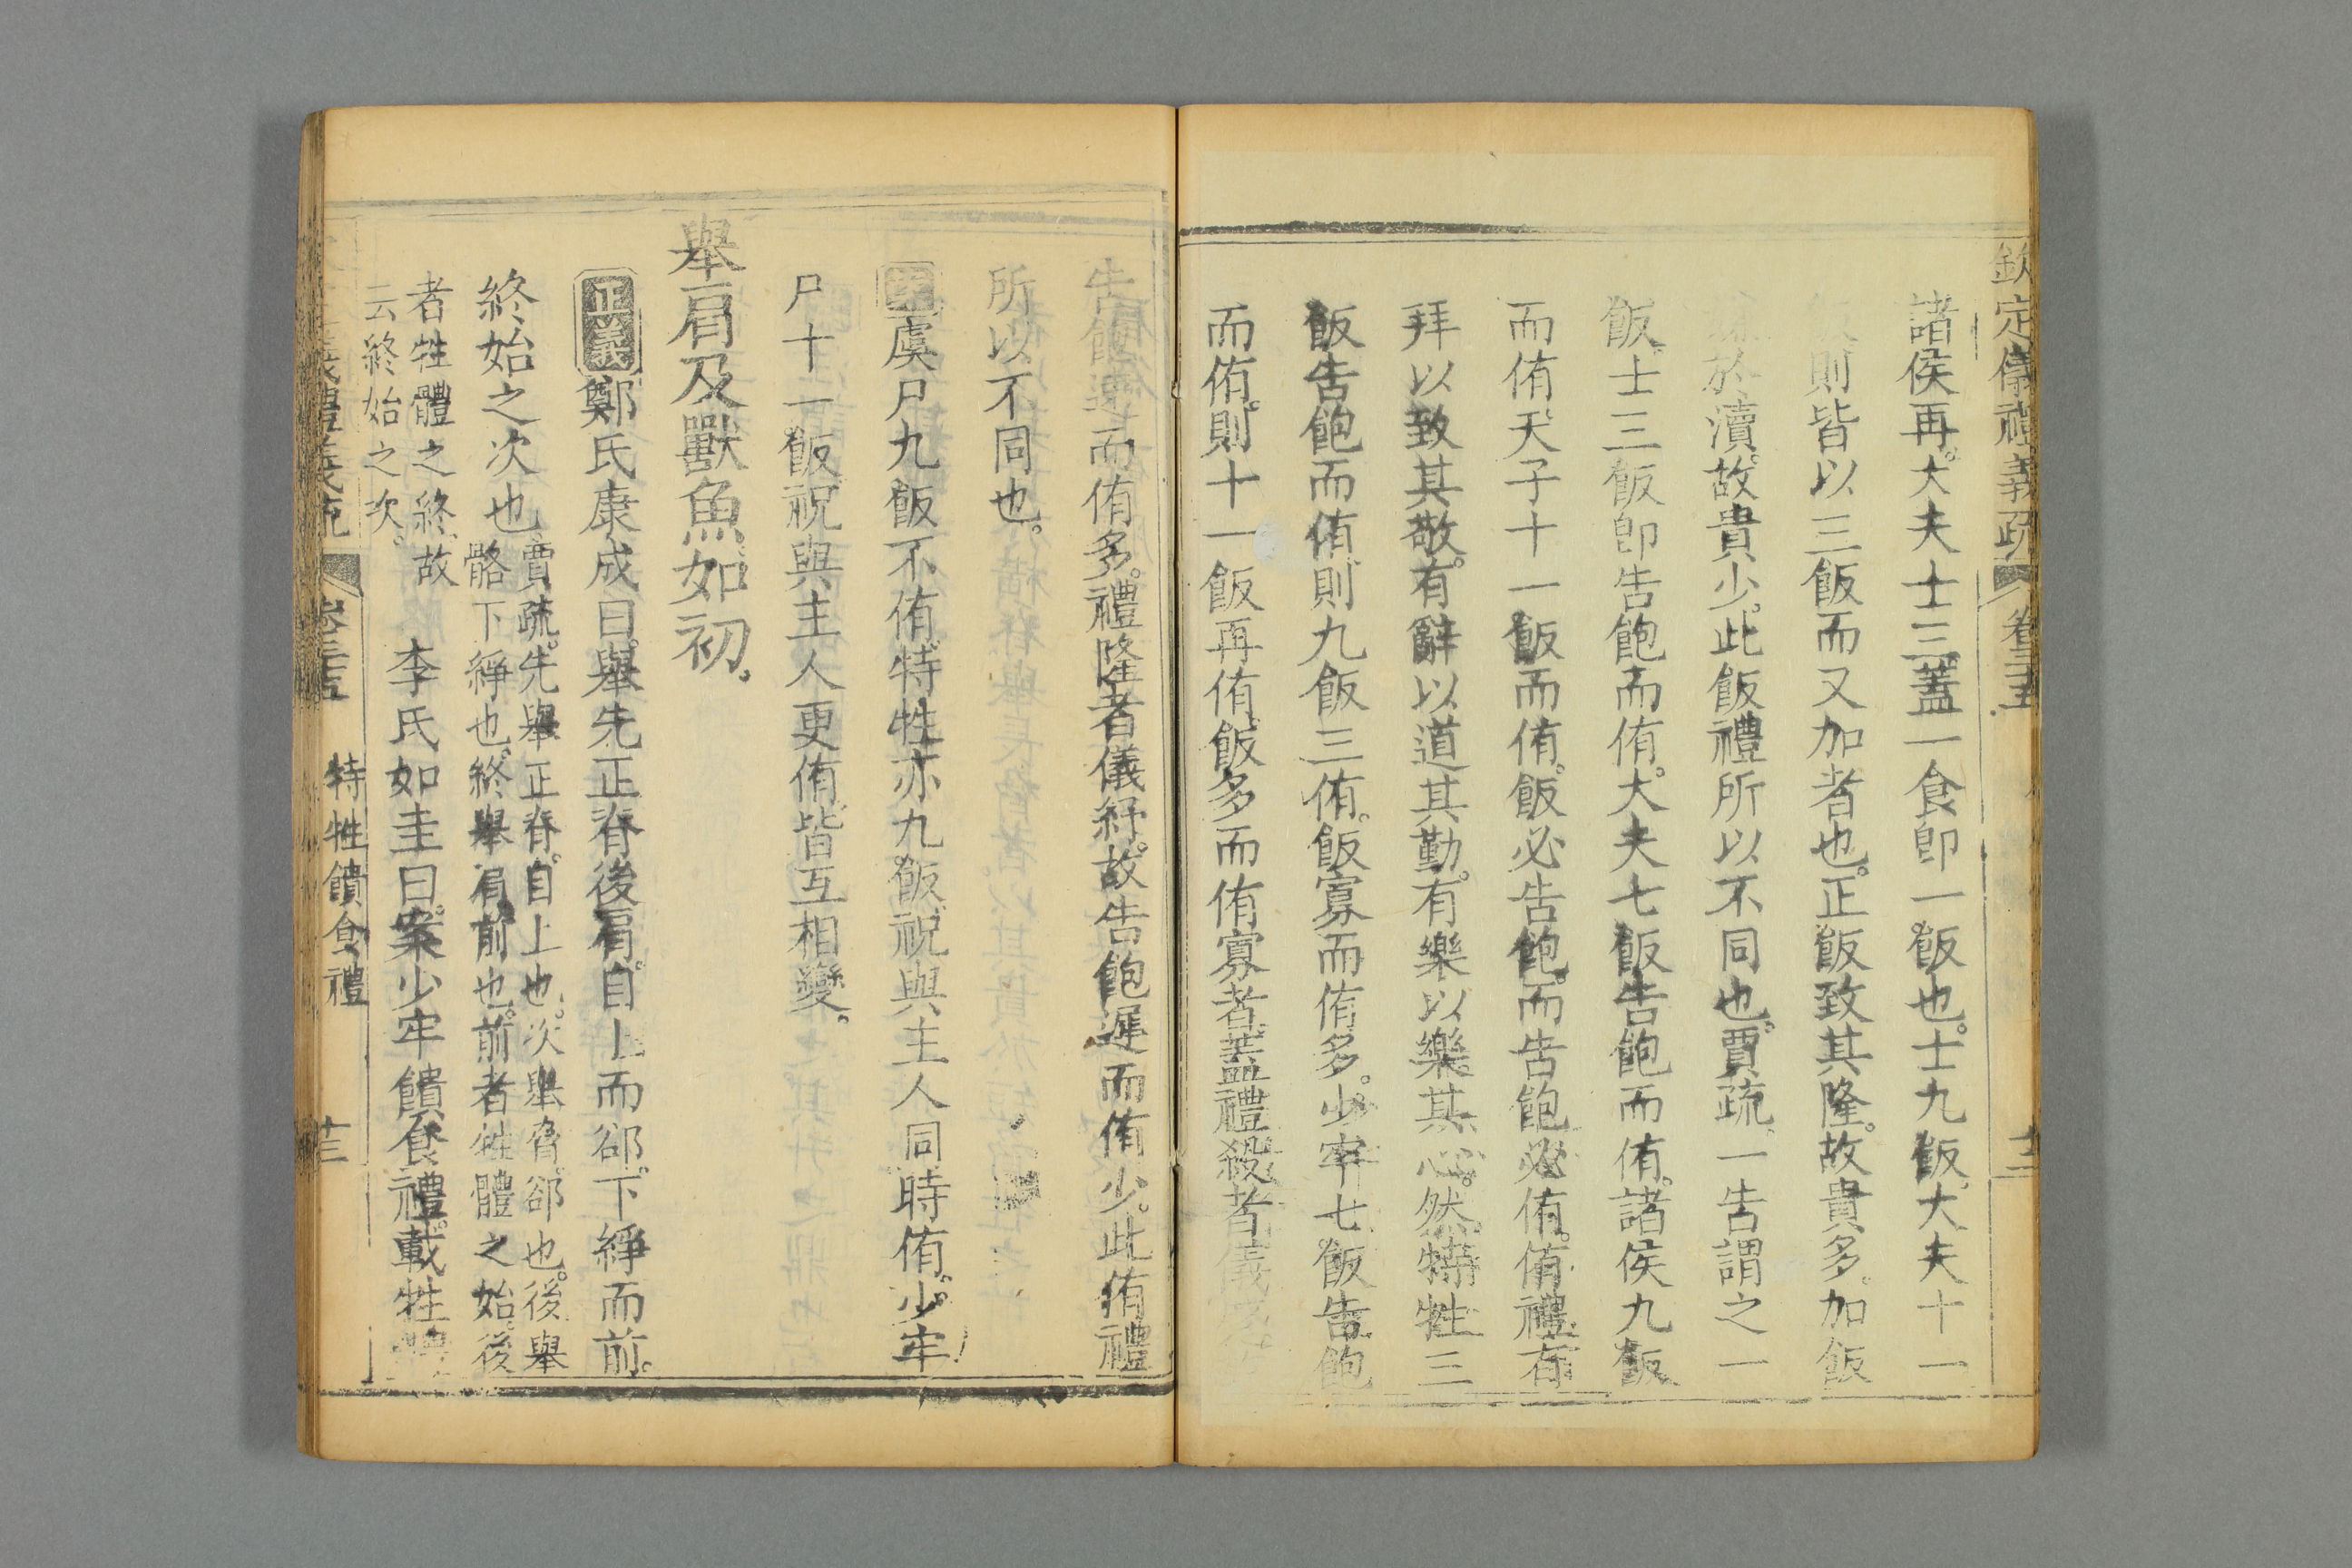 欽定儀禮義疏 卷三十五
諸侯再。大夫士三。蓋一食卽一飯也。士九飯、大夫十一
則皆以三飯而又加者也。正飯致其隆。故貴多。加飯
於瀆。故貴少。此飯禮所以不同也。賈疏、一告謂之一
飯。士三飯卽告飽而侑。大夫七飯告飽而侑。諸侯九飯
而侑。天子十一飯而侑。飯必告飽。而告飽必侑。侑禮有
拜以致其敬。有辭以道其勤。有樂以樂其心。然特牲三
飯告飽而侑、則九飯三侑。飯寡而侑多。少牢七飯告飽
而侑。則十一飯再侑。飯多而侑寡者。蓋禮殺者儀
告飽速而侑多。禮隆者儀紓。故告飽遲而侑少。此侑禮
所以不同也。
虞尸九飯不侑。特牲亦九飯、祝與主人同時侑。少牢
尸十一飯、祝與主人更侑、皆互相變。
舉肩及獸魚如初。
正義鄭氏康成曰。舉先正脊後肩。自上而卻。下綪而前。
終始之次也。
賈疏。先舉正脊。自上也。次舉脅。卻也。後舉
骼下綪也。終舉肩前也。前者牲體之始。後
者牲體之終。故
云終始之次。
李氏如圭曰。案少牢饋食禮。載牲體
義禮義疏 卷三十五 特牲饋食禮 十三